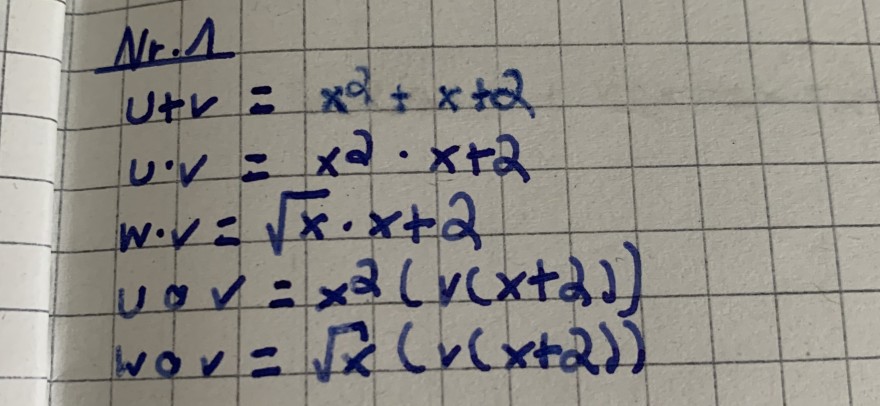 Nr. 1
u+v = x² + x+2
u·v = x² · x+2
w·v = √x · x+2
u∘v = x² (v(x+2))
w∘v = √x (v(x+2))